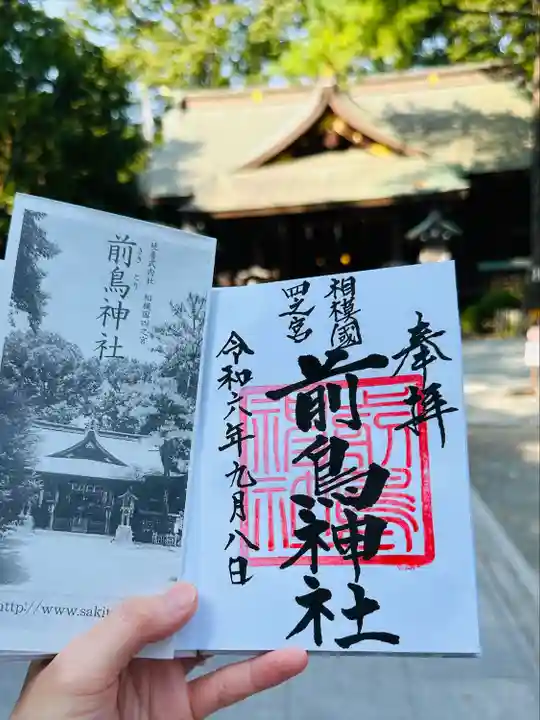 奉拝
相模國
四之宮
前鳥神社
令和六年九月八日
延喜式内社 相模国四之宮
さきとり
前鳥神社
http://www.sakit